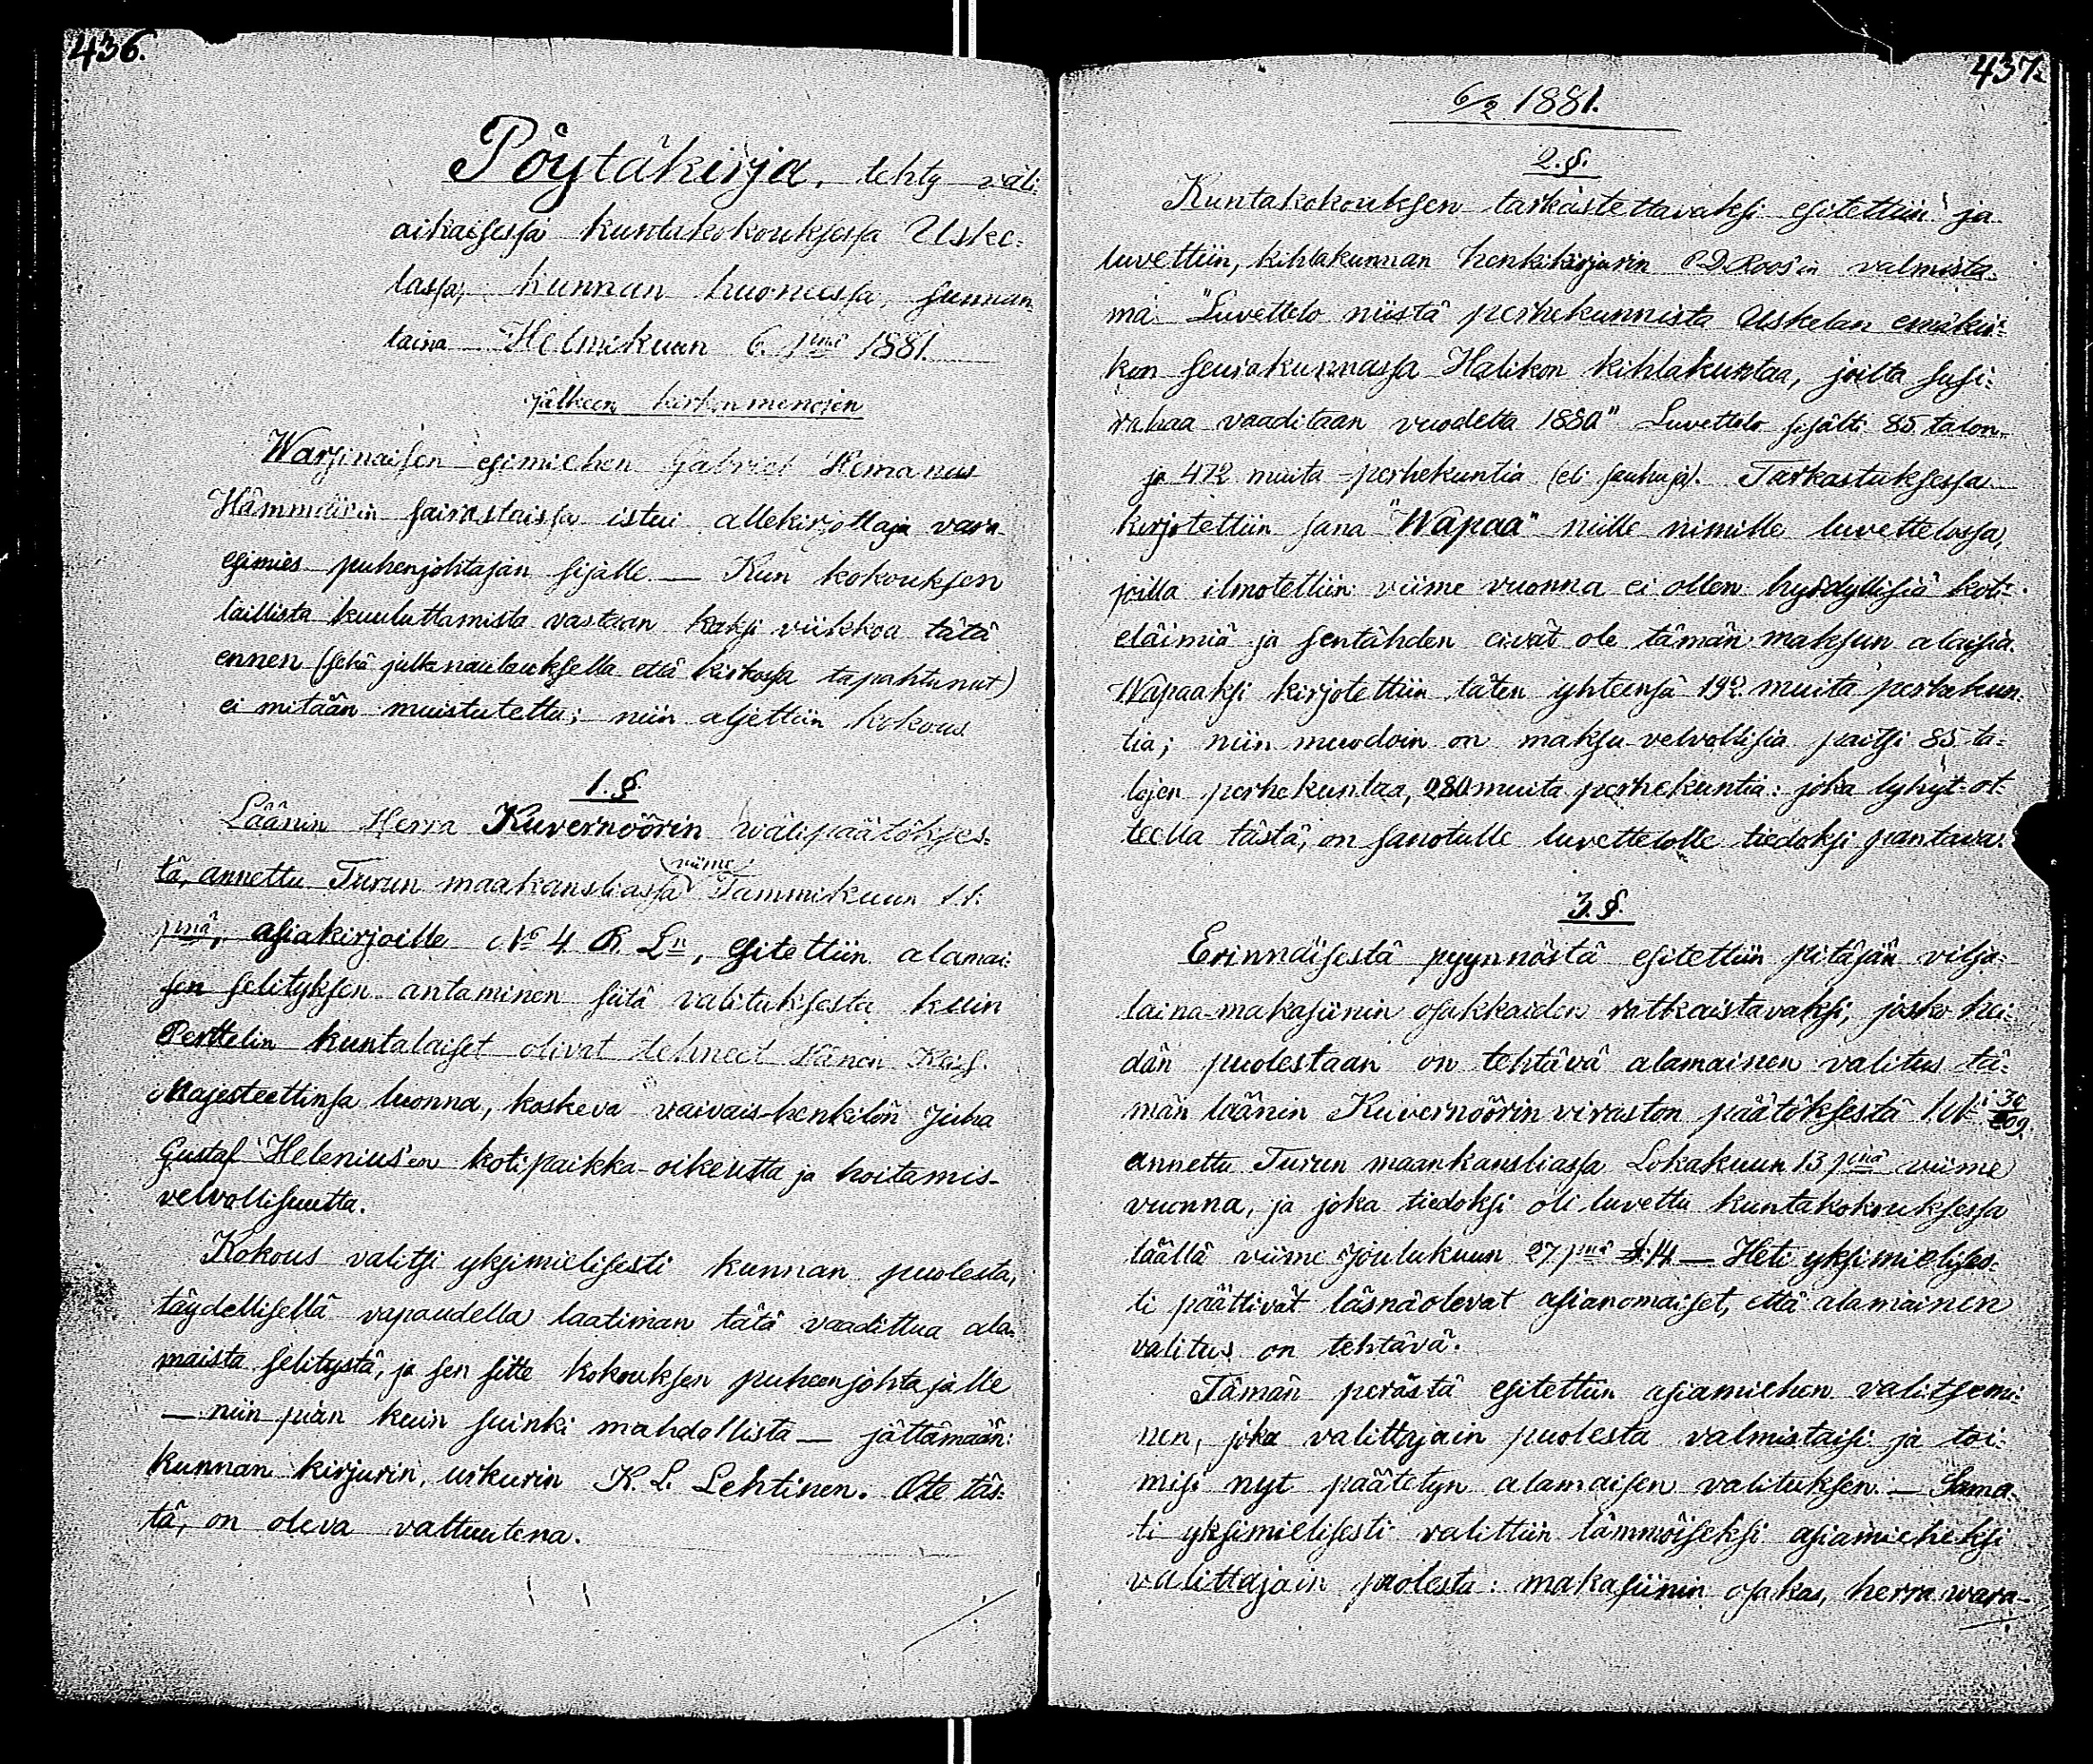 436.
Pöytäkirja, tehty väli-
aikaisessa kuntakokouksessa Uske-
lassa, kunnan huoneessa, sunnun-
taina Helmikuun 6. pnä 1881.
jälkeen kirkonmenojen
Warsinaisen esimiehen Gabriel Hemanus
Hämmäisin sairastaissa istui allekirjottaja vara-
esimies puhenjohtajan sijalle. — Kun kokouksen
laillista kuuluttamista vastaan kaksi viikkoa tätä
ennen (sekä julkinaulauksella että kirkossa tapahtunut)
ei mitään muistutettu; niin aljettiin kokous
1. §.
Läänin Herra Kuvernöörin wälipäätökses-
tä, annettu Turun maakansliassa (viime) Tammikuun 11.
pnä, asiakirjoille No 4 R. Ln, esitettiin alamai-
sen selityksen antaminen siitä valituksesta kuin
Perttelin kuntalaiset olivat tehneet Hänen Keis.
Majesteettinsa luonna, koskeva vaivais-henkilön Juha
Gustaf Helenius'en kotipaikka-oikeutta ja hoitamis-
velvollisuutta.
Kokous valitsi yksimielisesti kunnan puolesta,
täydellisellä vapaudella laatiman tätä vaadittua ala-
maista selitystä, ja sen sitte kokouksen puheenjohtajalle
— niin pian kuin suinki mahdollista — jättämään:
kunnan kirjurin, urkurin K. L. Lehtinen. Ote täs-
tä, on oleva valtuutena.
437.
6/2 1881.
2. §.
Kuntakokouksen tarkastettavaksi esitettiin ja
luvettiin, kihlakunnan henkikirjurin C D Roos'in valmista-
ma "Luvettelo niistä perhekunnista Uskelan emäkir-
kon seurakunnassa Halikon kihlakuntaa, joilta susi-
rahaa vaaditaan vuodelta 1880" Luvettelo sisälti 85 talon-
ja 472 muita perhekuntia (eli sauhuja). Tarkastuksessa
kirjotettiin sana "Wapaa" niille nimille luvettelossa,
joilla ilmotettiin viime vuonna ei ollen hyödyllisiä koti-
eläimiä ja sentähden eivät ole tämän maksun alaisia.
Wapaaksi kirjotettiin täten yhteensä 192 muita perhekun-
tia; niin muodoin on maksu-velvollisia paitsi 85 ta-
lojen perhekuntaa, 280 muita perhekuntia: joka lyhyt-ot-
teella tästä, on sanotulle luvettelolle tiedoksi pantava.
3. §.
Erinnäisestä pyynnöstä esitettiin pitäjän vilja-
laina-makasiinin osakkaiden ratkaistavaksi, josko hei-
dän puolestaan on tehtävä alamainen valitus tä-
män läänin Kuvernöörin viraston päätöksestä
annettu Turun maankansliassa Lokakuun 13 pnä viime
vuonna, ja joka tiedoksi oli luvettu kuntakokouksessa
täällä viime Joulukuun 27 pnä § 14 — Heti yksimielises-
ti päättivät läsnäolevat asianomaiset, että alamainen
valitus on tehtävä.
Tämän perästä esitettiin asiamiehen valitsemi-
nen, joka valittajain puolesta valmistaisi ja toi-
misi nyt päätetyn alamaisen valituksen. — Sama-
ti yksimielisesti valittiin tämmöiseksi asiamieheksi
valittajain puolesta: makasiinin osakas, herra wara-